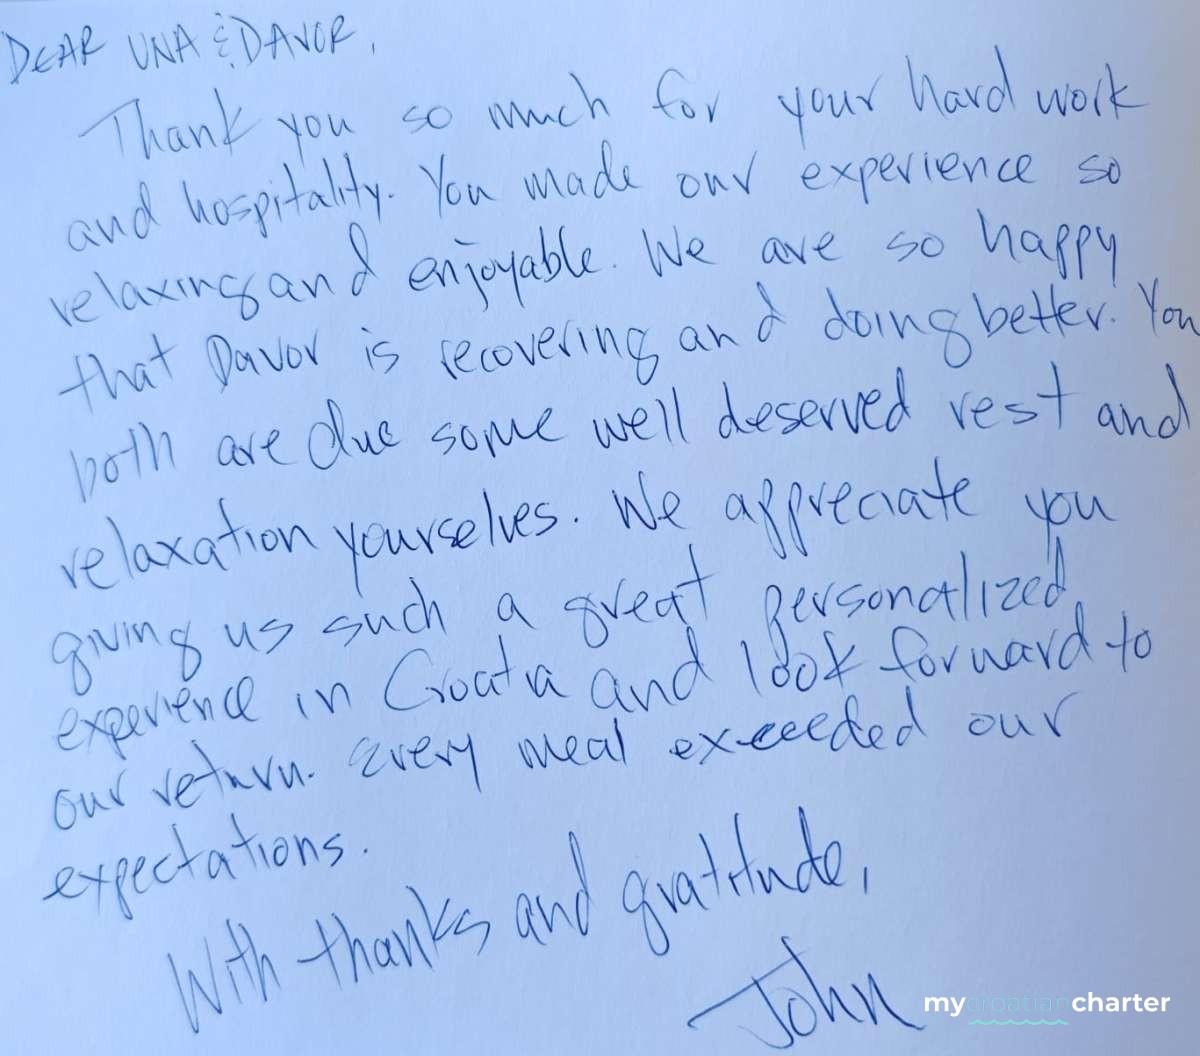 DEAR UNA & DAVOR,
Thank you so much for your hard work
and hospitality. You made our experience so
relaxing and enjoyable. We are so happy
that Davor is recovering and doing better. You
both are due some well deserved rest and
relaxation yourselves. We appreciate you
giving us such a great personalized
experience in Croatia and look forward to
our return. Every meal exceeded our
expectations.
With thanks and gratitude,
John
mycroatiancharter